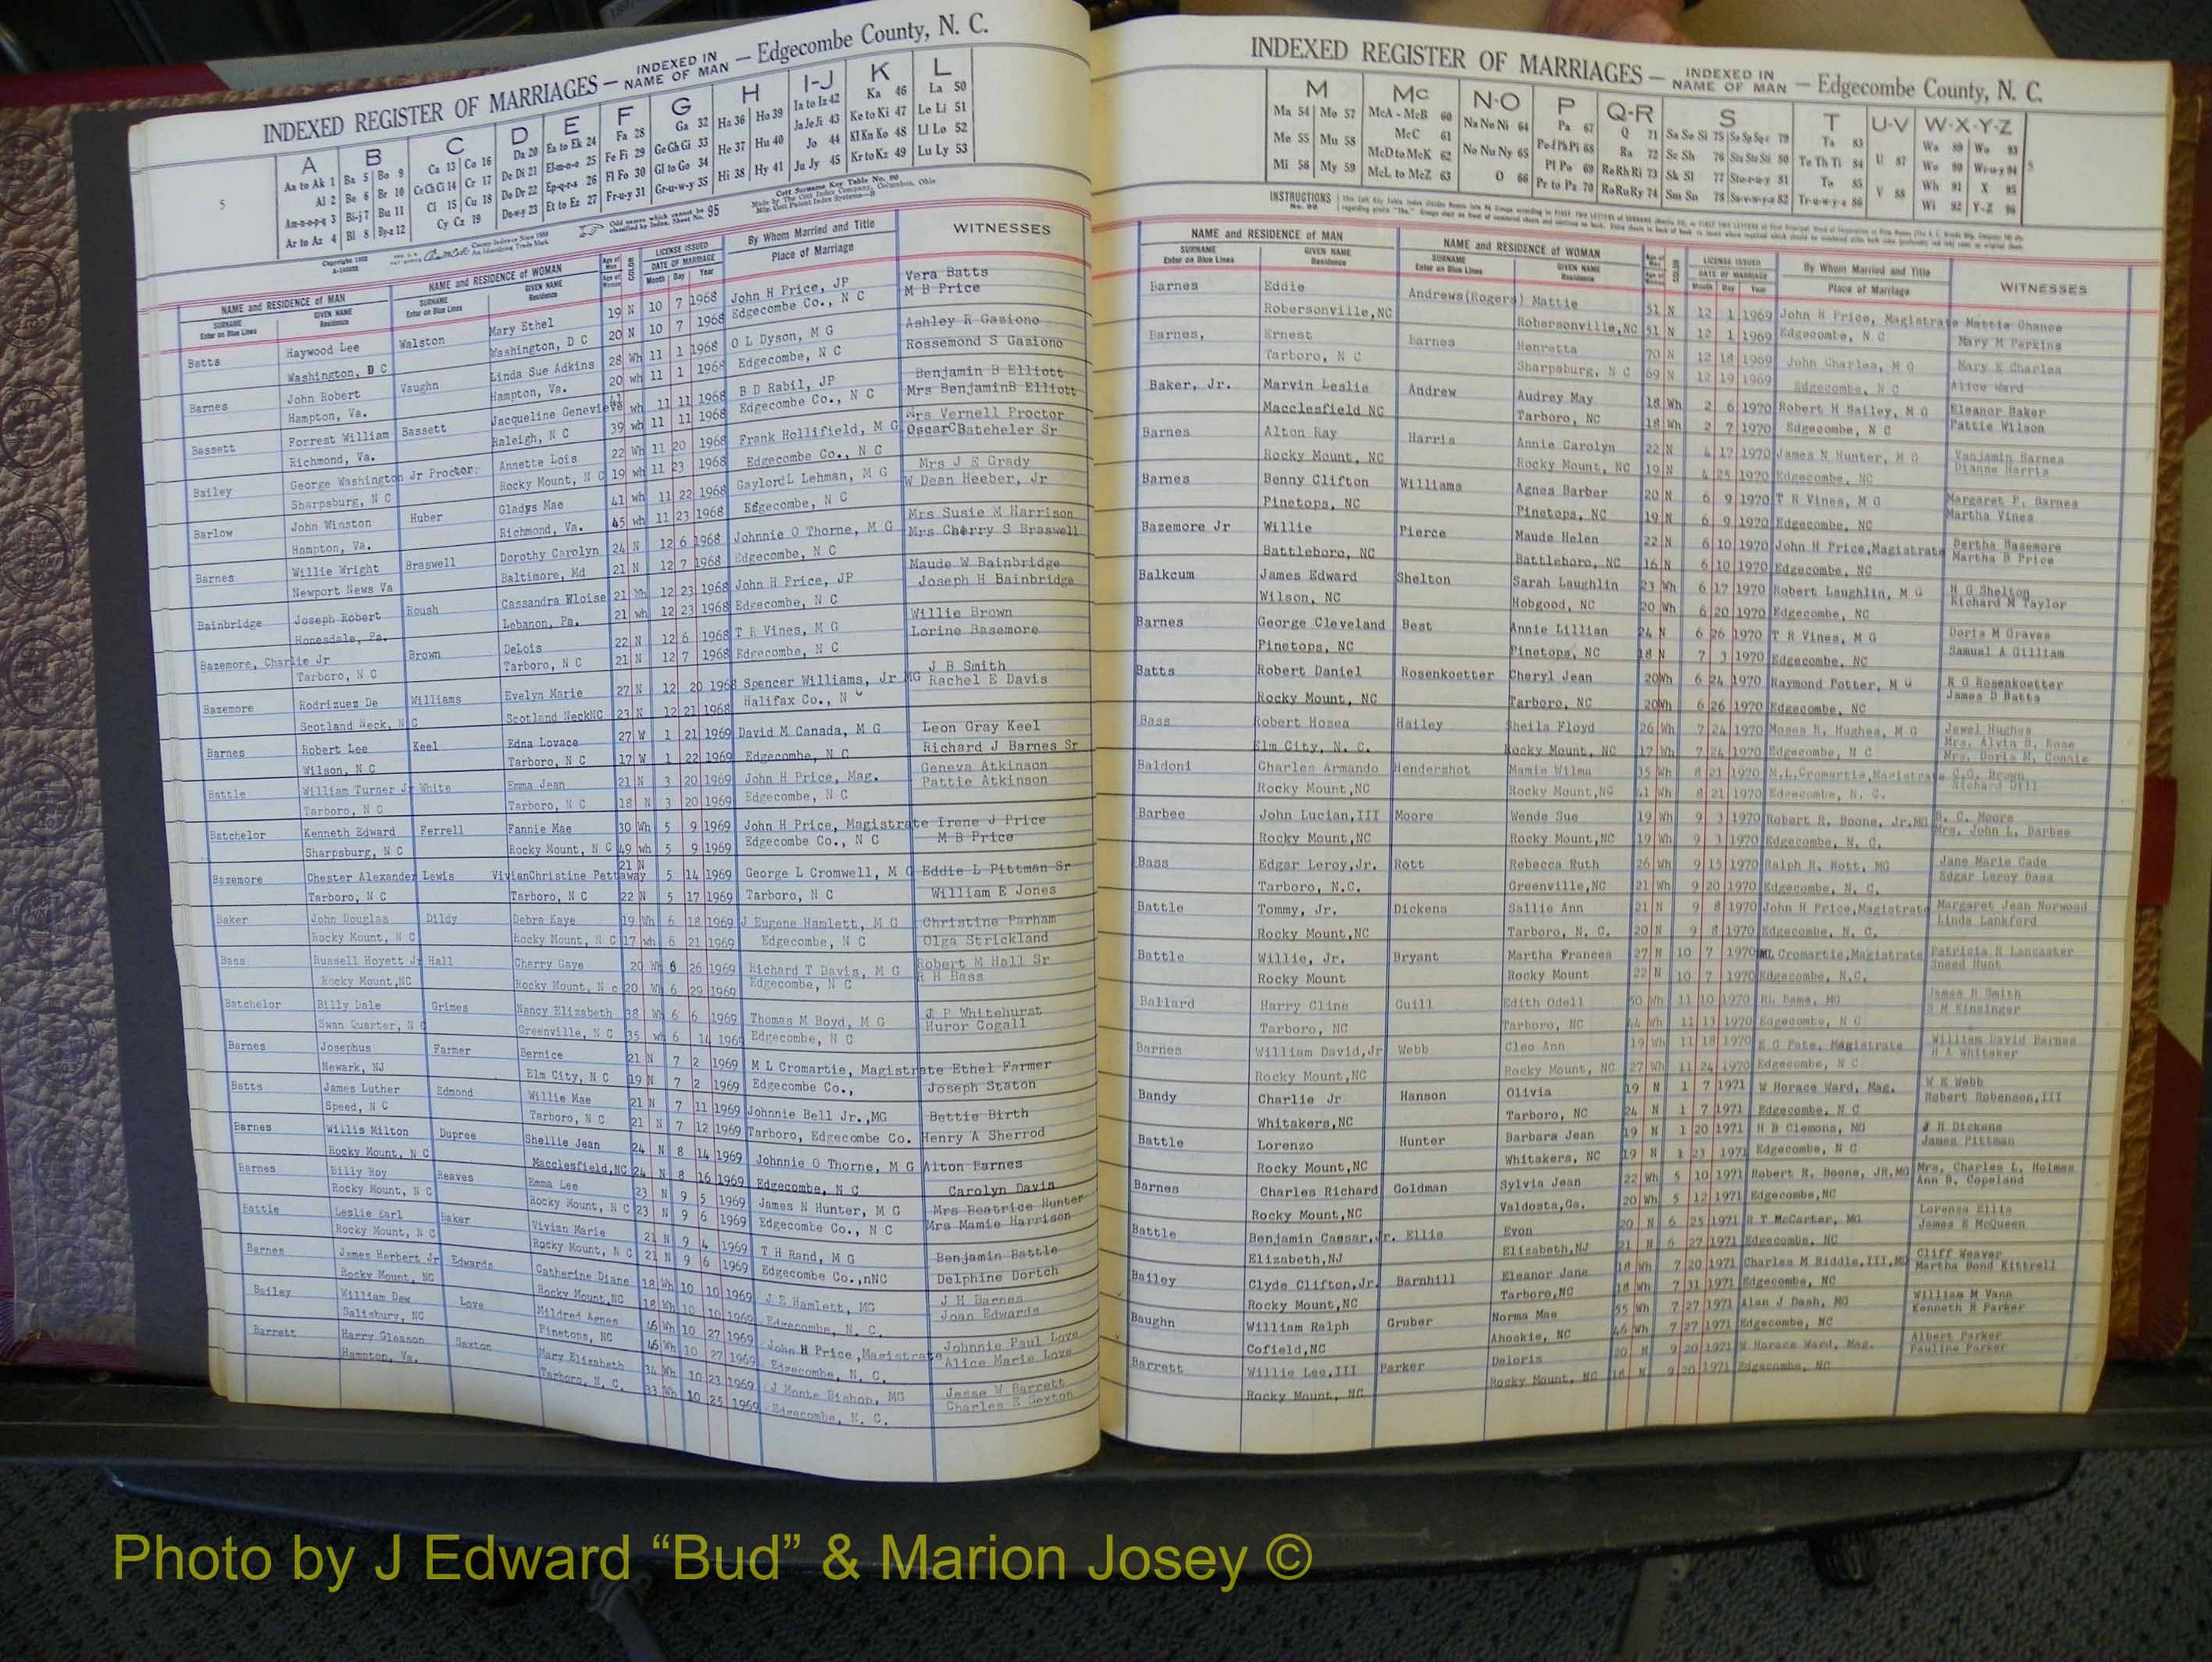 INDEXED REGISTER OF MARRIAGES — INDEXED IN NAME OF MAN — Edgecombe County, N. C.
A B C D E F G H I-J K L
Aa to Ak 1 Ba 5 Bo 9 Ca 13 Co 16 Da 20 Ea to Ek 24 Fa 28 Ga 32 Ha 36 Ho 39 Ia to Iz 42 Ka 46 La 50
Al 2 Be 6 Br 10 Ce Ch Ci 14 Cr 17 De Di 21 El-m-n-o 25 Fe Fi 29 Ge Gh Gi 33 He 37 Hu 40 Ja Je Ji 43 Ke to Ki 47 Le Li 51
Am-n-o-p-q 3 Bi-j 7 Bu 11 Cl 15 Cu 18 Do Dr 22 Ep-q-r-s 26 Fl Fo 30 Gl to Go 34 Hi 38 Hy 41 Jo 44 Kl Kn Ko 48 Ll Lo 52
Ar to Az 4 Bl 8 By-z 12 Cy Cz 19 Du-w-y 23 Et to Ez 27 Fr-u-y 31 Gr-u-w-y 35 Ju Jy 45 Kr to Kz 49 Lu Ly 53
5
NAME and RESIDENCE of MAN NAME and RESIDENCE of WOMAN LICENSE ISSUED By Whom Married and Title WITNESSES
SURNAME GIVEN NAME SURNAME GIVEN NAME COLOR DATE OF MARRIAGE Place of Marriage
Enter on Blue Lines Residence Enter on Blue Lines Residence Month Day Year
Batts Haywood Lee Walston Mary Ethel 19 N 10 7 1968 John H Price, JP Vera Batts
Washington, D C Washington, D C 20 N 10 7 1968 Edgecombe Co., N C M B Price
Barnes John Robert Vaughn Linda Sue Adkins 28 Wh 11 1 1968 O L Dyson, M G Ashley R Gasiono
Hampton, Va. Hampton, Va. 20 wh 11 1 1968 Edgecombe, N C Rossemond S Gaziono
Bassett Forrest William Bassett Jacqueline Genevieve 41 wh 11 11 1968 B D Rabil, JP Benjamin B Elliott
Richmond, Va. Raleigh, N C 39 wh 11 11 1968 Edgecombe Co., N C Mrs BenjaminB Elliott
Bailey George Washington Jr Proctor Annette Lois 22 Wh 11 20 1968 Frank Hollifield, M G Mrs Vernell Proctor
Sharpsburg, N C Rocky Mount, N C 19 wh 11 23 1968 Edgecombe Co., N C OscarCBateheler Sr
Barlow John Winston Huber Gladys Mae 41 wh 11 22 1968 GaylordL Lehman, M G Mrs J E Grady
Hampton, Va. Richmond, Va. 45 wh 11 23 1968 Edgecombe, N C W Dean Heeber, Jr
Barnes Willie Wright Braswell Dorothy Carolyn 24 N 12 6 1968 Johnnie O Thorne, M G Mrs Susie M Harrison
Newport News Va Baltimore, Md 21 N 12 7 1968 Edgecombe, N C Mrs Cherry S Braswell
Bainbridge Joseph Robert Roush Cassandra Eloise 21 Wh 12 23 1968 John H Price, JP Maude W Bainbridge
Honesdale, Pa. Lebanon, Pa. 21 wh 12 23 1968 Edgecombe, N C Joseph H Bainbridge
Bazemore, Charlie Jr Brown DeLois 22 N 12 6 1968 T R Vines, M G Willie Brown
Tarboro, N C Tarboro, N C 21 N 12 7 1968 Edgecombe, N C Lorine Basemore
Bazemore Rodrizuez De Williams Evelyn Marie 27 N 12 20 1968 Spencer Williams, Jr MG J B Smith
Scotland Neck, N C Scotland NeckNC 23 N 12 21 1968 Halifax Co., N C Rachel E Davis
Barnes Robert Lee Keel Edna Lovace 27 W 1 21 1969 David M Canada, M G Leon Gray Keel
Wilson, N C Tarboro, N C 17 W 1 22 1969 Edgecombe, N C Richard J Barnes Sr
Battle William Turner Jr White Emma Jean 21 N 3 20 1969 John H Price, Mag. Geneva Atkinson
Tarboro, N C Tarboro, N C 18 N 3 20 1969 Edgecombe, N C Pattie Atkinson
Batchelor Kenneth Edward Ferrell Fannie Mae 30 Wh 5 9 1969 John H Price, Magistrate Irene J Price
Sharpsburg, N C Rocky Mount, N C 49 wh 5 9 1969 Edgecombe Co., N C M B Price
Bazemore Chester Alexander Lewis VivianChristine Pettaway 21 N 5 14 1969 George L Cromwell, M G Eddie L Pittman Sr
Tarboro, N C Tarboro, N C 22 N 5 17 1969 Tarboro, N C William E Jones
Baker John Douglas Dildy Debra Kaye 19 Wh 6 18 1969 J Eugene Hamlett, M G Christine Parham
Rocky Mount, N C Rocky Mount, N C 17 wh 6 21 1969 Edgecombe, N C Olga Strickland
Bass Russell Hoyett Jr Hall Cherry Gaye 20 Wh 6 26 1969 Richard T Davis, M G Robert M Hall Sr
Rocky Mount,NC Rocky Mount, N C 20 Wh 6 29 1969 Edgecombe, N C R H Bass
Batchelor Billy Dale Grimes Nancy Elizabeth 38 Wh 6 6 1969 Thomas M Boyd, M G J P Whitehurst
Swan Quarter, N C Greenville, N C 35 wh 6 14 1969 Edgecombe, N C Huror Cogall
Barnes Josephus Farmer Bernice 21 N 7 2 1969 M L Cromartie, Magistrate Ethel Farmer
Newark, NJ Elm City, N C 19 N 7 2 1969 Edgecombe Co., Joseph Staton
Batts James Luther Edmond Willie Mae 21 N 7 11 1969 Johnnie Bell Jr.,MG Bettie Birth
Speed, N C Tarboro, N C 21 N 7 12 1969 Tarboro, Edgecombe Co. Henry A Sherrod
Barnes Willis Milton Dupree Shellie Jean 24 N 8 14 1969 Johnnie O Thorne, M G Alton Barnes
Rocky Mount, N C Macclesfield,NC 24 N 8 16 1969 Edgecombe, N C Carolyn Davis
Barnes Billy Roy Reaves Emma Lee 23 N 9 5 1969 James N Hunter, M G Mrs Beatrice Hunter
Rocky Mount, N C Rocky Mount, N C 23 N 9 6 1969 Edgecombe Co., N C Mrs Mamie Harrison
Battle Leslie Earl Baker Vivian Marie 21 N 9 4 1969 T H Rand, M G Benjamin Battle
Rocky Mount, N C Rocky Mount, N C 21 N 9 6 1969 Edgecombe Co.,nNC Delphine Dortch
Barnes James Herbert Jr Edwards Catherine Diane 18 Wh 10 10 1969 J E Hamlett, MG J H Barnes
Rocky Mount, NC Rocky Mount,NC 18 Wh 10 10 1969 Edgecombe, N. C. Joan Edwards
Bailey William Dew Love Mildred Agnes 46 Wh 10 27 1969 John H Price,Magistrate Johnnie Paul Love
Salisbury, NC Pinetops, NC 46 Wh 10 27 1969 Edgecombe, N. C. Alice Marie Love
Barrett Harry Gleanon Saxton Mary Elizabeth 34 Wh 10 23 1969 J Monte Bishop, MG Jesse W Barrett
Hampton, Va. Tarboro, N. C. 33 Wh 10 25 1969 Edgecombe, N. C. Charles E Sexton
INDEXED REGISTER OF MARRIAGES — INDEXED IN NAME OF MAN — Edgecombe County, N. C.
M Mc N-O P Q-R S T U-V W-X-Y-Z
Ma 54 Mo 57 McA - McB 60 Na Ne Ni 64 Pa 67 Q 71 Sa Sc Si 75 So Sp Sq-r 79 Ta 83 Wa 89 Wo 93
Me 55 Mu 58 McC 61 No Nu Ny 65 Pe Pf Ph Pi 68 Ra 72 Se Sh 76 Sta Ste Sti 80 Te Th Ti 84 U 87 We 90 Wr-u-y 94 5
Mi 56 My 59 McD to McK 62 O 66 Pl Po 69 Re Rh Ri 73 Sk Sl 77 Sto-r-u-y 81 To 85 V 88 Wh 91 X 95
McL to McZ 63 Pr to Pz 70 Ro Ru Ry 74 Sm Sn 78 Su-v-w-y-z 82 Tr-u-w-y-z 86 Wi 92 Y-Z 96
NAME and RESIDENCE of MAN NAME and RESIDENCE of WOMAN LICENSE ISSUED By Whom Married and Title WITNESSES
SURNAME GIVEN NAME SURNAME GIVEN NAME DATE OF MARRIAGE Place of Marriage
Enter on Blue Lines Residence Enter on Blue Lines Residence Month Day Year
Barnes Eddie Andrews(Rogers) Mattie 51 N 12 1 1969 John H Price, Magistrate Mattie Chance
Robersonville,NC Robersonville,NC 51 N 12 1 1969 Edgecombe, N C Mary M Perkins
Barnes, Ernest Barnes Henretta 70 N 12 18 1969 John Charles, M G Mary K Charles
Tarboro, N C Sharpsburg, N C 69 N 12 19 1969 Edgecombe, N C Alice Ward
Baker, Jr. Marvin Leslie Andrew Audrey May 18 Wh 2 6 1970 Robert H Bailey, M G Eleanor Baker
Macclesfield NC Tarboro, NC 18 Wh 2 7 1970 Edgecombe, N C Pattie Wilson
Barnes Alton Ray Harris Annie Carolyn 22 N 4 17 1970 James N Hunter, M G Vanjamin Barnes
Rocky Mount, NC Rocky Mount, NC 19 N 4 25 1970 Edgecombe, NC Dianne Harris
Barnes Benny Clifton Williams Agnes Barber 20 N 6 9 1970 T R Vines, M G Margaret P. Barnes
Pinetops, NC Pinetops, NC 19 N 6 9 1970 Edgecombe, NC Martha Vines
Bazemore Jr Willie Pierce Maude Helen 22 N 6 10 1970 John H Price,Magistrate Bertha Basemore
Battleboro, NC Battleboro, NC 16 N 6 10 1970 Edgecombe, NC Martha B Price
Balkcum James Edward Shelton Sarah Laughlin 23 Wh 6 17 1970 Robert Laughlin, M G H G Shelton
Wilson, NC Hobgood, NC 20 Wh 6 20 1970 Edgecombe, NC Richard M Taylor
Barnes George Cleveland Best Annie Lillian 24 N 6 26 1970 T R Vines, M G Doris M Graves
Pinetops, NC Pinetops, NC 18 N 7 3 1970 Edgecombe, NC Samuel A Gilliam
Batts Robert Daniel Rosenkoetter Cheryl Jean 20Wh 6 24 1970 Raymond Potter, M G R G Rosenkoetter
Rocky Mount, NC Tarboro, NC 20Wh 6 26 1970 Edgecombe, NC James D Batts
Bass Robert Hosea Hailey Sheila Floyd 26 Wh 7 24 1970 Moses R. Hughes, M G Jewel Hughes
Elm City, N. C. Rocky Mount, NC 17 Wh 7 24 1970 Edgecombe, N C Mrs. Alvin B. Rose
Mrs. Doris M.
Baldoni Charles Armando Hendershot Mamie Wilma 35 Wh 8 21 1970 M.L.Cromartie,Magistrate C.G. Brown
Rocky Mount,NC Rocky Mount,NC 41 Wh 8 21 1970 Edgecombe, N. C. Richard Dill
Barbee John Lucian,III Moore Wende Sue 19 Wh 9 3 1970 Robert R. Boone, Jr.MG B. C. Moore
Rocky Mount,NC Rocky Mount,NC 19 Wh 9 3 1970 Edgecombe, N. C. Mrs. John L. Barbee
Bass Edgar Leroy,Jr. Rott Rebecca Ruth 26 Wh 9 15 1970 Ralph R. Rott, MG Jane Marie Cade
Tarboro, N.C. Greenville,NC 21 Wh 9 20 1970 Edgecombe, N. C. Edgar Leroy Bass
Battle Tommy, Jr. Dickens Sallie Ann 21 N 9 8 1970 John H Price,Magistrate Margaret Jean Norwood
Rocky Mount,NC Tarboro, N. C. 20 N 9 8 1970 Edgecombe, N. C. Linda Lankford
Battle Willie, Jr. Bryant Martha Frances 27 N 10 7 1970 ML Cromartie,Magistrate Patricia R Lancaster
Rocky Mount Rocky Mount 22 N 10 7 1970 Edgecombe, N.C. Sneed Hunt
Ballard Harry Cline Guill Edith Odell 50 Wh 11 10 1970 RL Bame, MG James R Smith
Tarboro, NC Tarboro, NC 44 Wh 11 13 1970 Edgecombe, N C S M Kinsinger
Barnes William David,Jr Webb Cleo Ann 19 Wh 11 18 1970 E G Pate, Magistrate William David Barnes
Rocky Mount,NC Rocky Mount, NC 27 Wh 11 24 1970 Edgecombe, N C H A Whitaker
Bandy Charlie Jr Hanson Olivia 19 N 1 7 1971 W Horace Ward, Mag. W K Webb
Whitakers,NC Tarboro, NC 24 N 1 7 1971 Edgecombe, N C Robert Robenson,III
Battle Lorenzo Hunter Barbara Jean 19 N 1 20 1971 H B Clemons, MG J H Dickens
Rocky Mount,NC Whitakers, NC 19 N 1 23 1971 Edgecombe, N C James Pittman
Barnes Charles Richard Goldman Sylvia Jean 22 Wh 5 10 1971 Robert R. Boone, JR,MG Mrs. Charles L. Holmes
Rocky Mount,NC Valdosta,Ga. 20 Wh 5 12 1971 Edgecombe,NC Ann B. Copeland
Battle Benjamin Caesar,Jr. Ellis Evon 20 N 6 25 1971 R T McCarter, MG Lorenza Ellis
Elizabeth,NJ Elizabeth,NJ 21 N 6 27 1971 Edgecombe, NC James E McQueen
Bailey Clyde Clifton,Jr. Barnhill Eleanor Jane 18 Wh 7 20 1971 Charles M Riddle,III,MG Cliff Weaver
Rocky Mount,NC Tarboro,NC 18 Wh 7 31 1971 Edgecombe, NC Martha Bond Kittrell
Baughn William Ralph Gruber Norma Mae 55 Wh 7 27 1971 Alan J Dash, MG William M Vann
Cofield,NC Ahoskie, NC 46 Wh 7 27 1971 Edgecombe, NC Kenneth R Parker
Barrett Willie Lee,III Parker Deloris 20 N 9 20 1971 W Horace Ward, Mag. Albert Parker
Rocky Mount, NC Rocky Mount, NC 18 N 9 20 1971 Edgecombe, NC Pauline Parker
Photo by J Edward “Bud” & Marion Josey ©